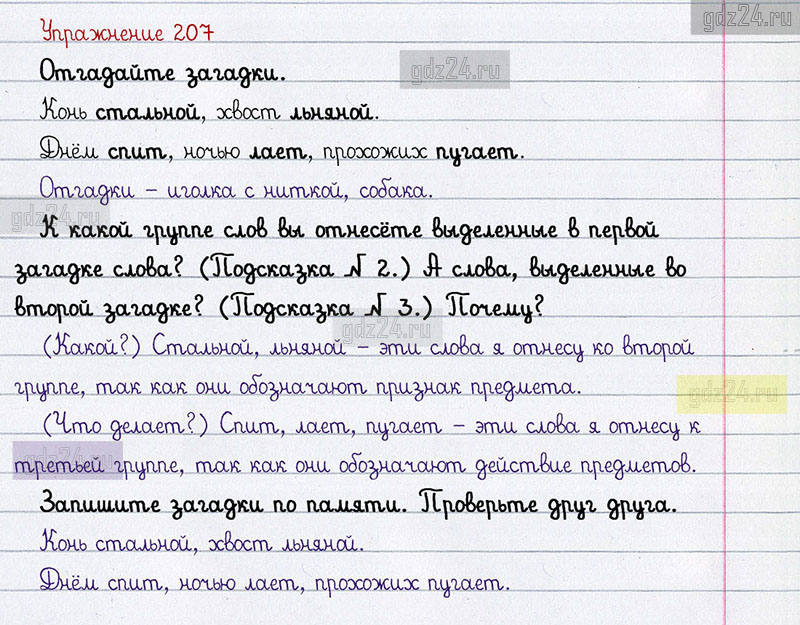 gdz24.ru
Упражнение 207
Отгадайте загадки.
gdz24.ru
Конь стальной, хвост льняной.
Днём спит, ночью лает, прохожих пугает.
Отгадки – иголка с ниткой, собака.
gdz24.ru
К какой группе слов вы отнесёте выделенные в первой
загадке слова? (Подсказка № 2.) А слова, выделенные во
второй загадке? (Подсказка № 3.) Почему?
gdz24.ru
(Какой?) Стальной, льняной – эти слова я отнесу ко второй
группе, так как они обозначают признак предмета.
gdz24.ru
(Что делает?) Спит, лает, пугает – эти слова я отнесу к
третьей группе, так как они обозначают действие предметов.
gdz24.ru
Запишите загадки по памяти. Проверьте друг друга.
Конь стальной, хвост льняной.
Днём спит, ночью лает, прохожих пугает.